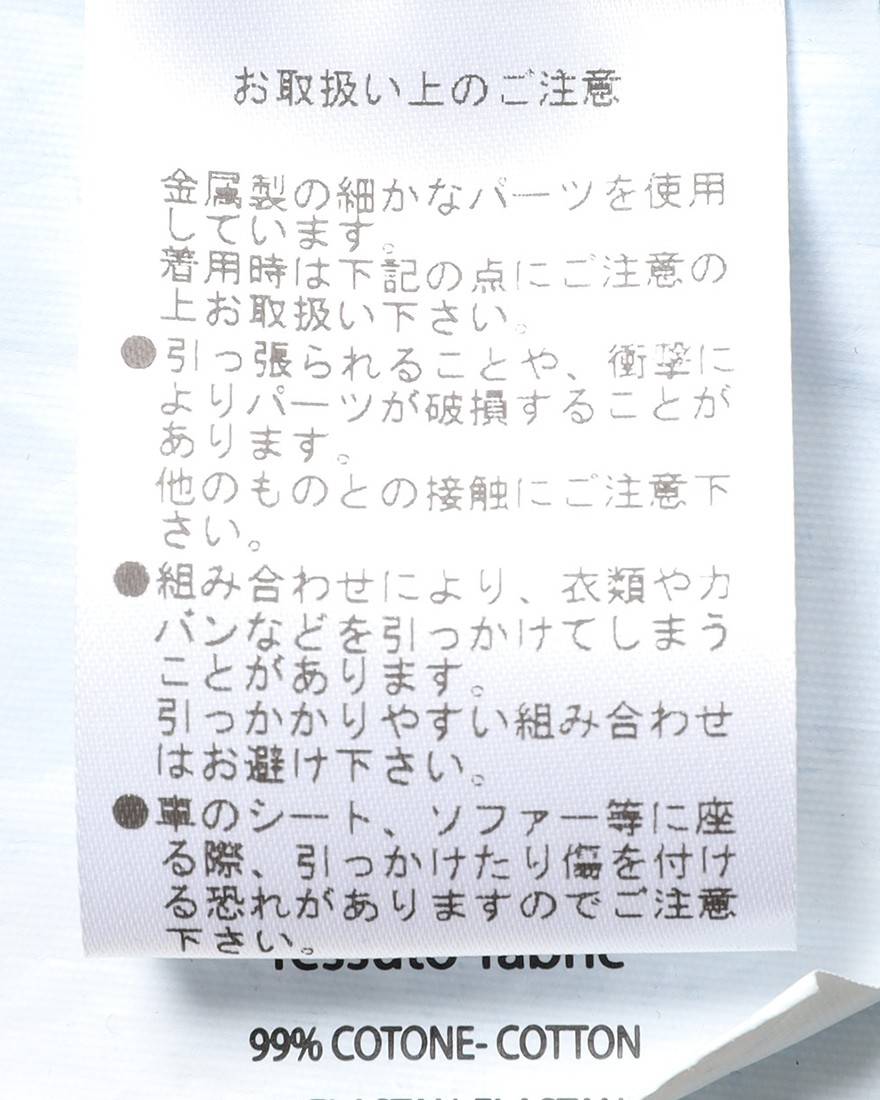 お取扱い上のご注意
金属製の細かなパーツを使用
しています。
着用時は下記の点にご注意の
上お取扱い下さい。
●引っ張られることや、衝撃に
よりパーツが破損することが
あります。
他のものとの接触にご注意下
さい。
●組み合わせにより、衣類やカ
バンなどを引っかけてしまう
ことがあります。
引っかかりやすい組み合わせ
はお避け下さい。
●車のシート、ソファー等に座
る際、引っかけたり傷を付け
る恐れがありますのでご注意
下さい。
Tessuto fabric
99% COTONE- COTTON